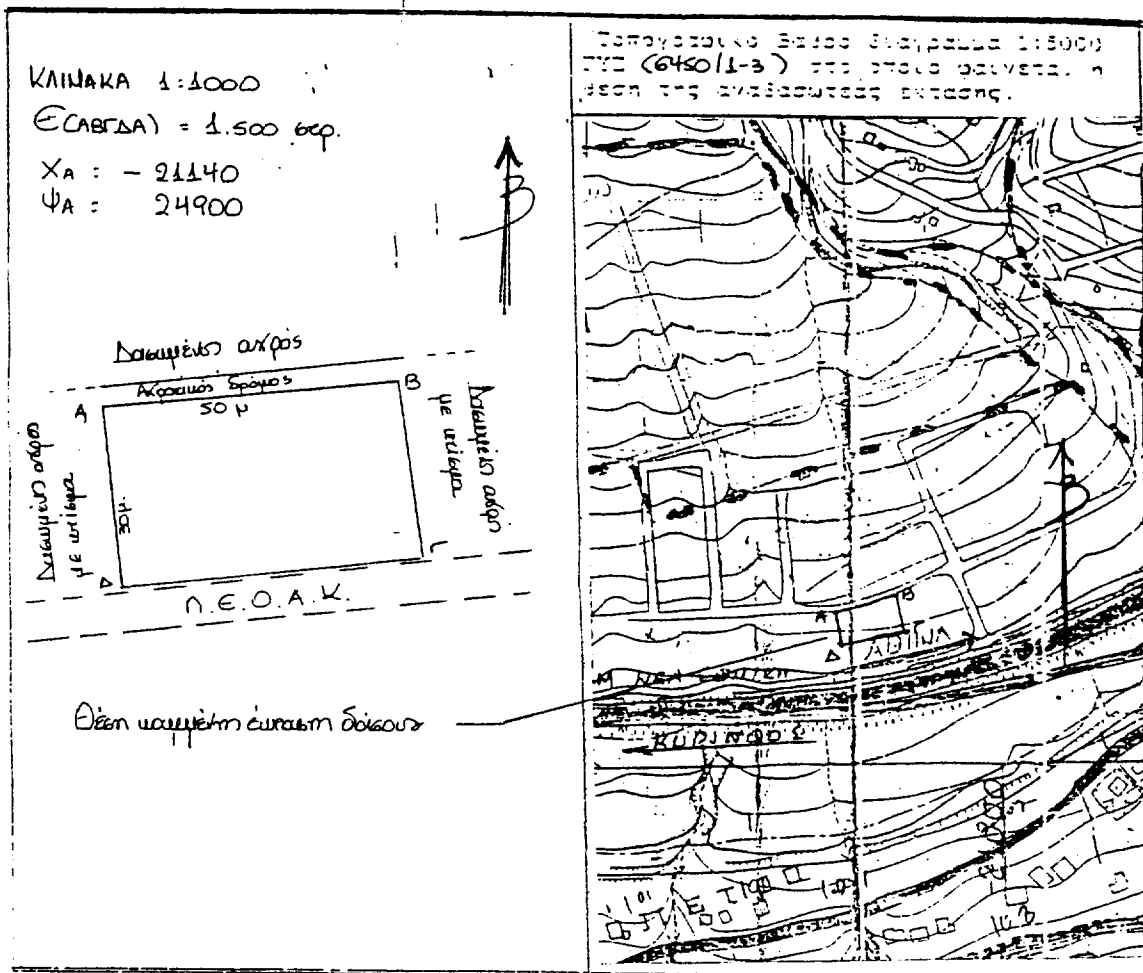 ΚΛΙΜΑΚΑ 1:1000
Ε(ΑΒΓΔΑ) = 1.500 στρ.
ΧΑ : - 21140
ΨΑ : 24900
Β
Δασωμένος αγρός
Αγροτικός δρόμος
50 μ
Α
Β
Δασωμένος αγρός
με κτίσμα
30μ.
Δασωμένος αγρός
με κτίσμα
Δ
Γ
Π.Ε.Ο.Α.Κ.
Θέση καμμένης έκτασης δάσους
Τοπογραφικό Βάσεο διάγραμμα 1:5000
ΓΥΣ (6450/1-3) στο οποίο φαίνεται η
θέση της αναδασωτέας έκτασης.
Β
Α
Β
Δ
ΑΘΗΝΑ
ΝΕΑ
ΚΟΡΙΝΘΟΣ